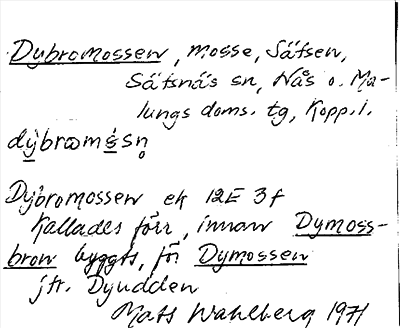 Dybromossen, mosse, Säfsen,
Säfsnäs sn, Nås o. Ma-
lungs doms. tg, Kopp. l.
dỳbrωmǿsn̥
Dybromossen ek 12E 3f
Kallades förr, innan Dymoss-
bron byggts, för Dymossen
jfr. Dyudden
Mats Wahlberg 1971